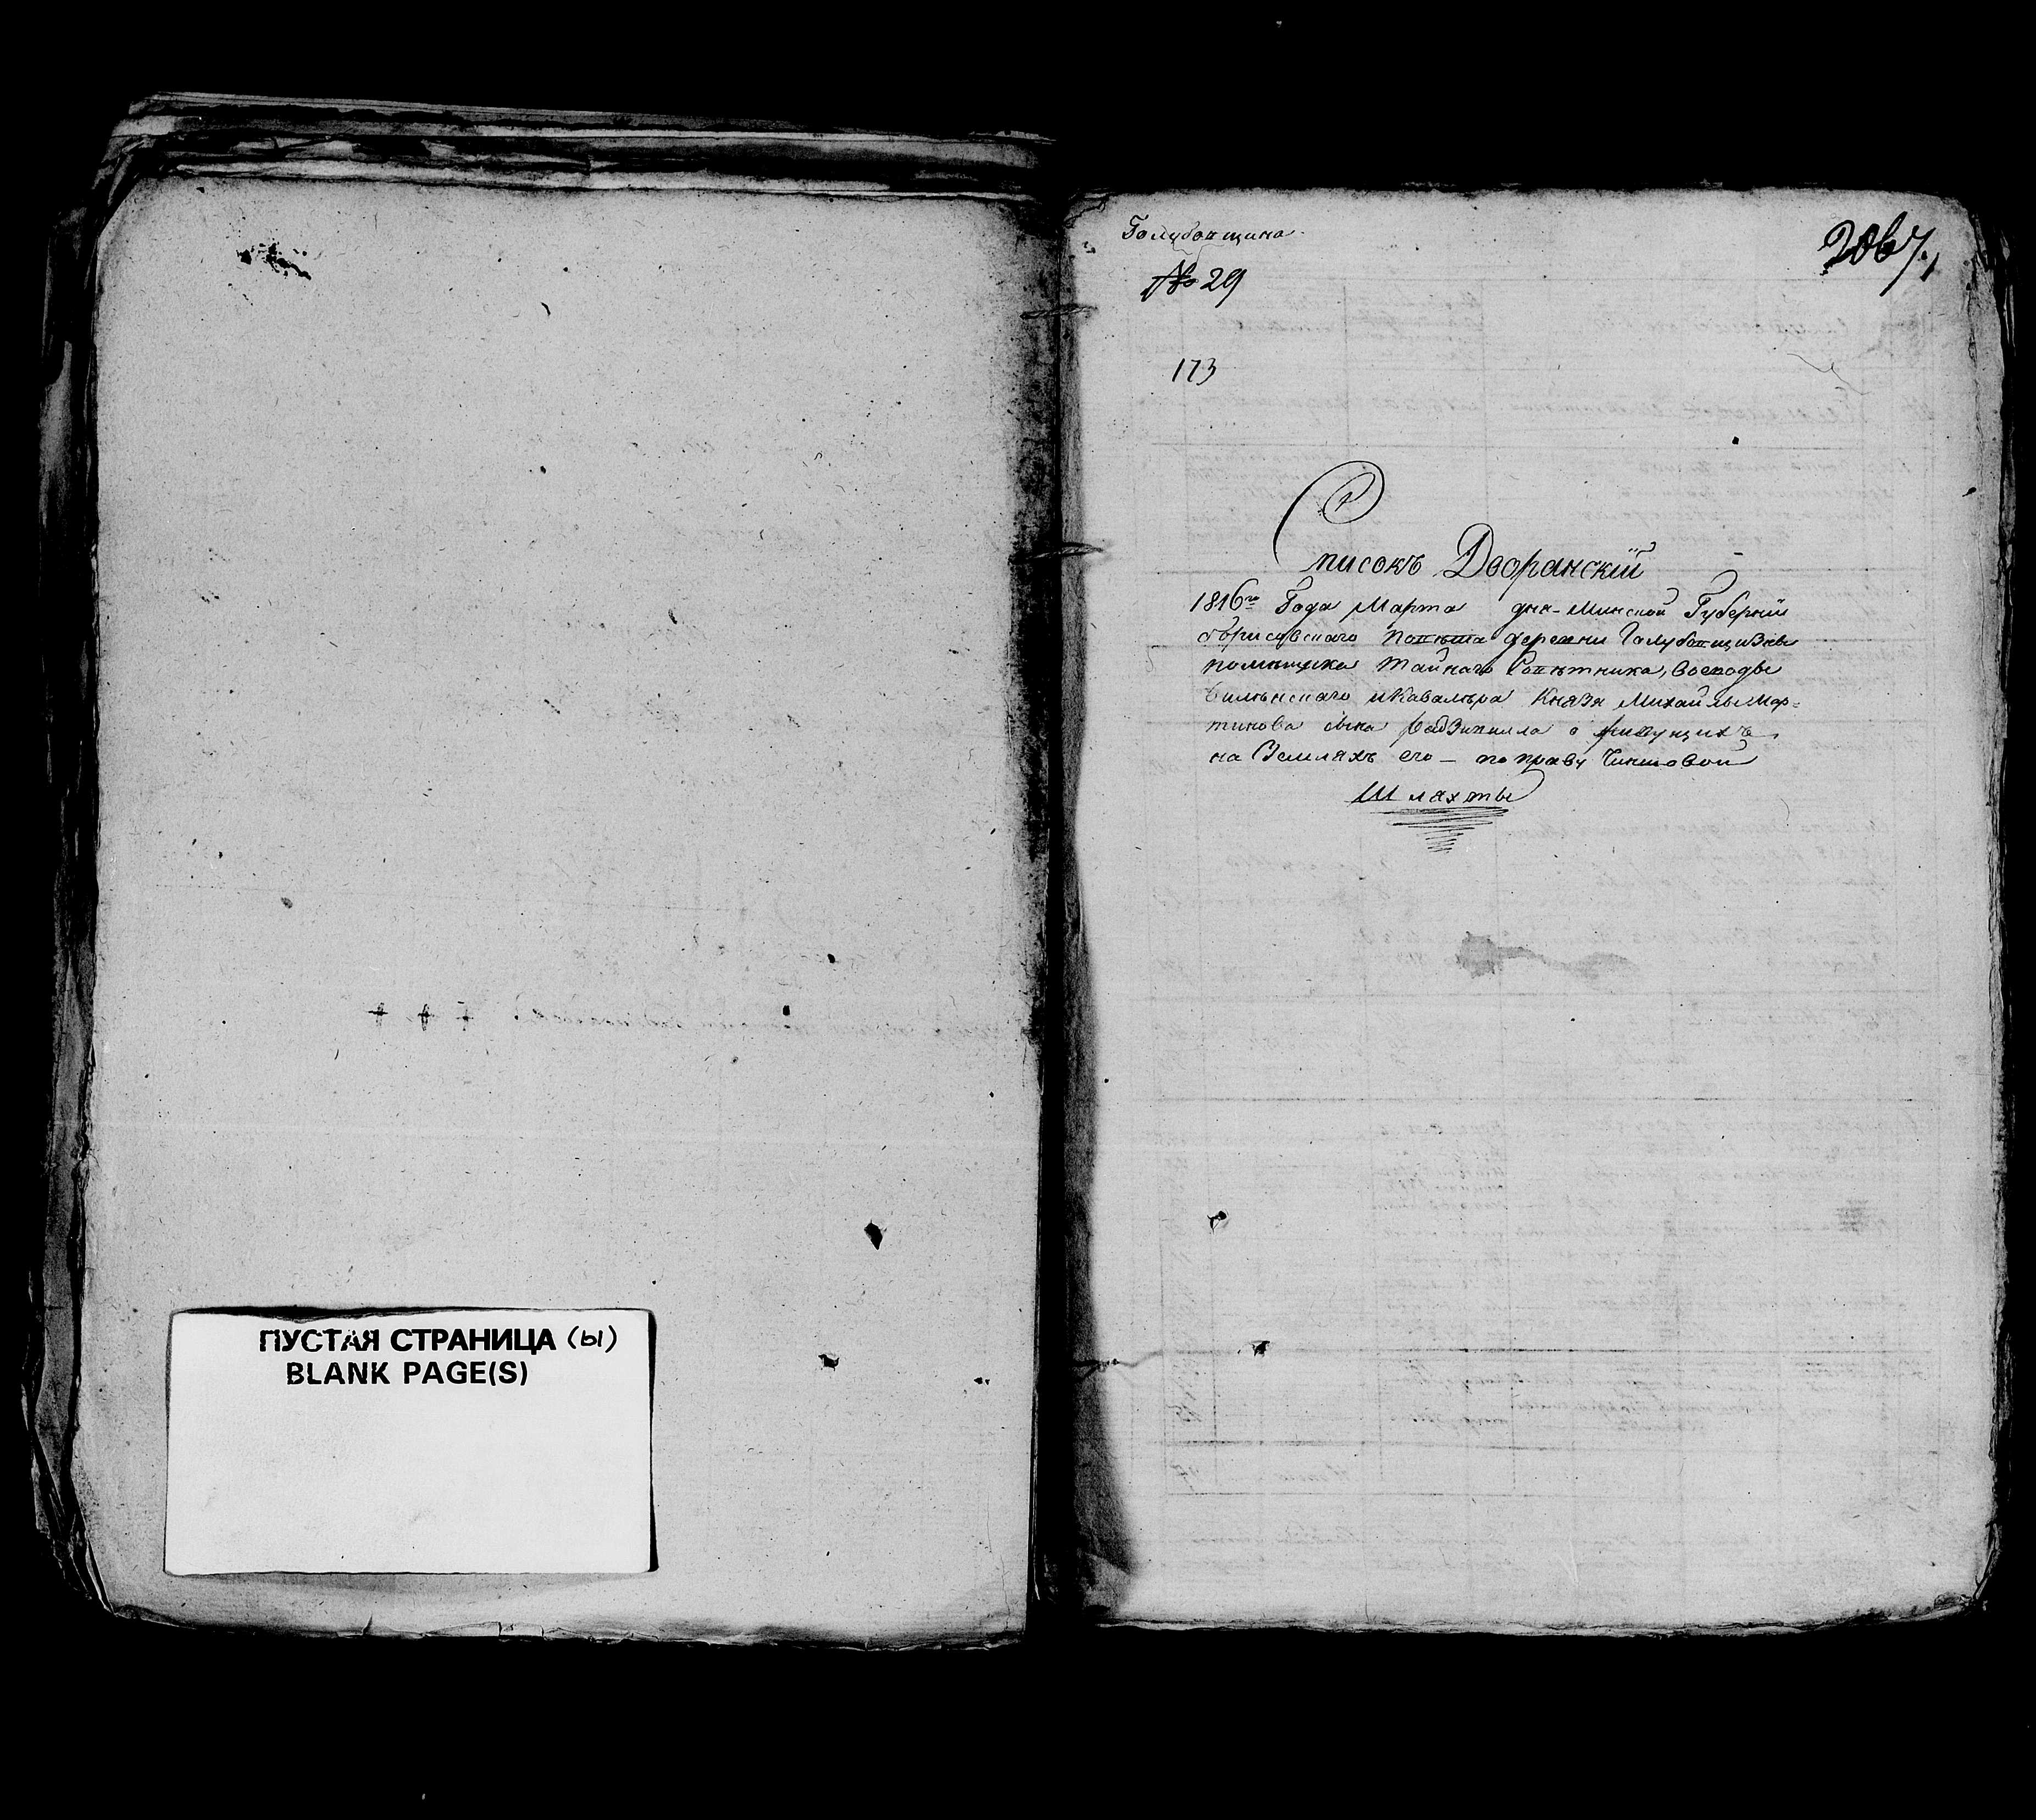 ПУСТАЯ СТРАНИЦА (ы)
BLANK PAGE(S)
Голубовщина
№ 29
173
Списокъ Дворянскій
1816го Года Марта дня Минской Губерніи
борисовскаго повѣта деревни Голубовщизны
помѣщика тайнаго Совѣтника, воеводы
виленскаго и Кавалѣра Князя Михайлы Мар=
тинова сына радзивилла о живущихъ
на Земляхъ его – по праву Чиншовой
Шляхты